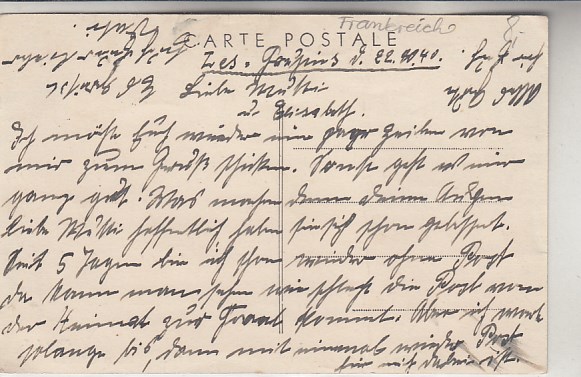 Frankreich
CARTE POSTALE
d. 22.10.40.
Liebe Mutti
u. Elisabeth.
Ich möchte Euch wieder ein paar Zeilen von
mir zum Gruß schicken. Sonst geht es mir
ganz gut. Was machen denn deine Augen
liebe Mutti hoffentlich haben sie sich schon gebessert.
Seit 5 Tagen bin ich schon wieder ohne Post
da kann man sehn wie schlecht die Post von
der Heimat zur Front kommt. Aber ich warte
solange bis, dann mit einmal wieder Post
für mich dabei ist.